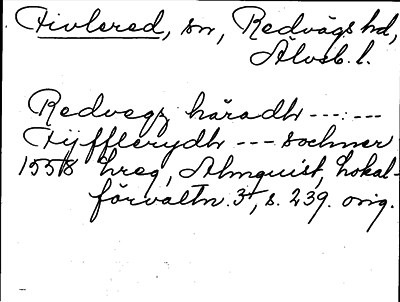 Fivlered, sn, Redvägs hd,
Älvsb. l.
Redvegz häradh ---:---
Fÿfflerydh --- sochner
1558 hreg, Almquist, Lokal-
förvaltn. 3, s. 239. orig.